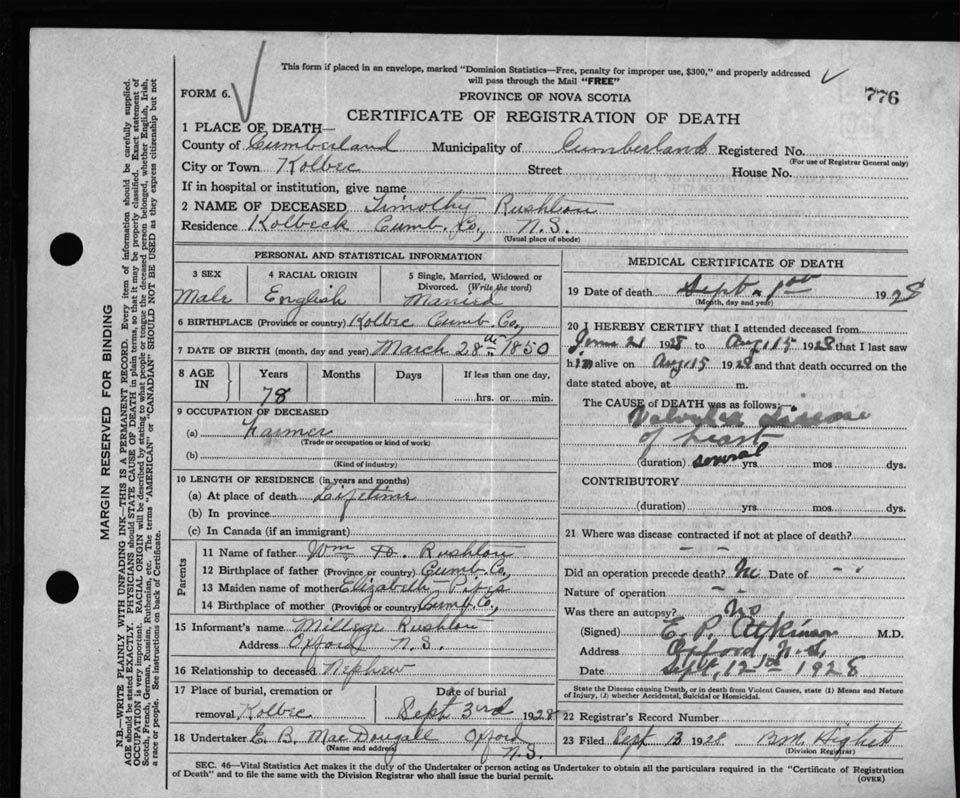 This form if placed in an envelope, marked "Dominion Statistics—Free, penalty for improper use, $300," and properly addressed
will pass through the Mail "FREE"
FORM 6.
PROVINCE OF NOVA SCOTIA
776
CERTIFICATE OF REGISTRATION OF DEATH
1 PLACE OF DEATH—
County of Cumberland Municipality of Cumberland Registered No.
(For use of Registrar General only)
City or Town Kolbec Street House No.
If in hospital or institution, give name
2 NAME OF DECEASED Timothy Rushton
Residence Kolbeck Cumb. Co., N.S.
(Usual place of abode)
PERSONAL AND STATISTICAL INFORMATION
3 SEX 4 RACIAL ORIGIN 5 Single, Married, Widowed or
Divorced. (Write the word)
Male English Married
6 BIRTHPLACE (Province or country) Kolbec Cumb. Co.,
7 DATE OF BIRTH (month, day and year) March 28th 1850
8 AGE IN Years Months Days If less than one day,
78 hrs. or min.
9 OCCUPATION OF DECEASED
(a) Farmer
(Trade or occupation or kind of work)
(b)
(Kind of industry)
10 LENGTH OF RESIDENCE (in years and months)
(a) At place of death Lifetime
(b) In province
(c) In Canada (if an immigrant)
Parents
11 Name of father Wm Rushton
12 Birthplace of father (Province or country) Cumb. Co.,
13 Maiden name of mother Elizabeth
14 Birthplace of mother (Province or country) Cumb. Co.,
15 Informant's name Rushton
Address Oxford N.S.
16 Relationship to deceased Nephew
17 Place of burial, cremation or Date of burial
removal Kolbec Sept 3rd 1928
18 Undertaker E. B. MacDougall Oxford
(Name and address) N.S.
MEDICAL CERTIFICATE OF DEATH
19 Date of death Sept. 1st 1928
(Month, day and year)
20 I HEREBY CERTIFY that I attended deceased from
21 1928 to Aug 15 1928 that I last saw
him alive on Aug 15 1928 and that death occurred on the
date stated above, at m.
The CAUSE of DEATH was as follows:—
Valvular disease
of heart
(duration) several yrs. mos dys.
CONTRIBUTORY
(duration) yrs mos dys.
21 Where was disease contracted if not at place of death?
Did an operation precede death? No Date of
Nature of operation
Was there an autopsy? No
(Signed) E. P. Atkinson M.D.
Address Oxford N.S.
Date Sept. 12th 1928
State the Disease causing Death, or in death from Violent Causes, state (1) Means and Nature
of Injury, (2) whether Accidental, Suicidal or Homicidal.
22 Registrar's Record Number
23 Filed Sept 13 1928
(Division Registrar)
SEC. 46—Vital Statistics Act makes it the duty of the Undertaker or person acting as Undertaker to obtain all the particulars required in the "Certificate of Registration
of Death" and to file the same with the Division Registrar who shall issue the burial permit.
(OVER)
MARGIN RESERVED FOR BINDING
N.B.—WRITE PLAINLY WITH UNFADING INK—THIS IS A PERMANENT RECORD. Every item of information should be carefully supplied.
AGE should be stated EXACTLY. PHYSICIANS should STATE CAUSE OF DEATH in plain terms, so that it may be properly classified. Exact statement of
OCCUPATION is very important. RACIAL ORIGIN will be described by stating to what people or tongue the deceased person belonged, whether English, Irish,
Scotch, French, German, Russian, Ruthenian, etc. The terms "AMERICAN" or "CANADIAN" SHOULD NOT BE USED as they express citizenship but not
a race or people. See instructions on back of Certificate.